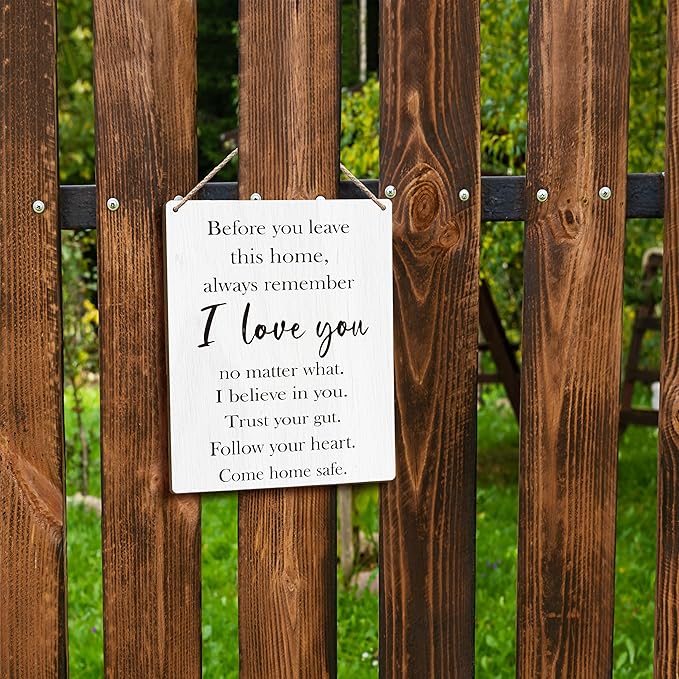 Before you leave
this home,
always remember
I love you
no matter what.
I believe in you.
Trust your gut.
Follow your heart.
Come home safe.